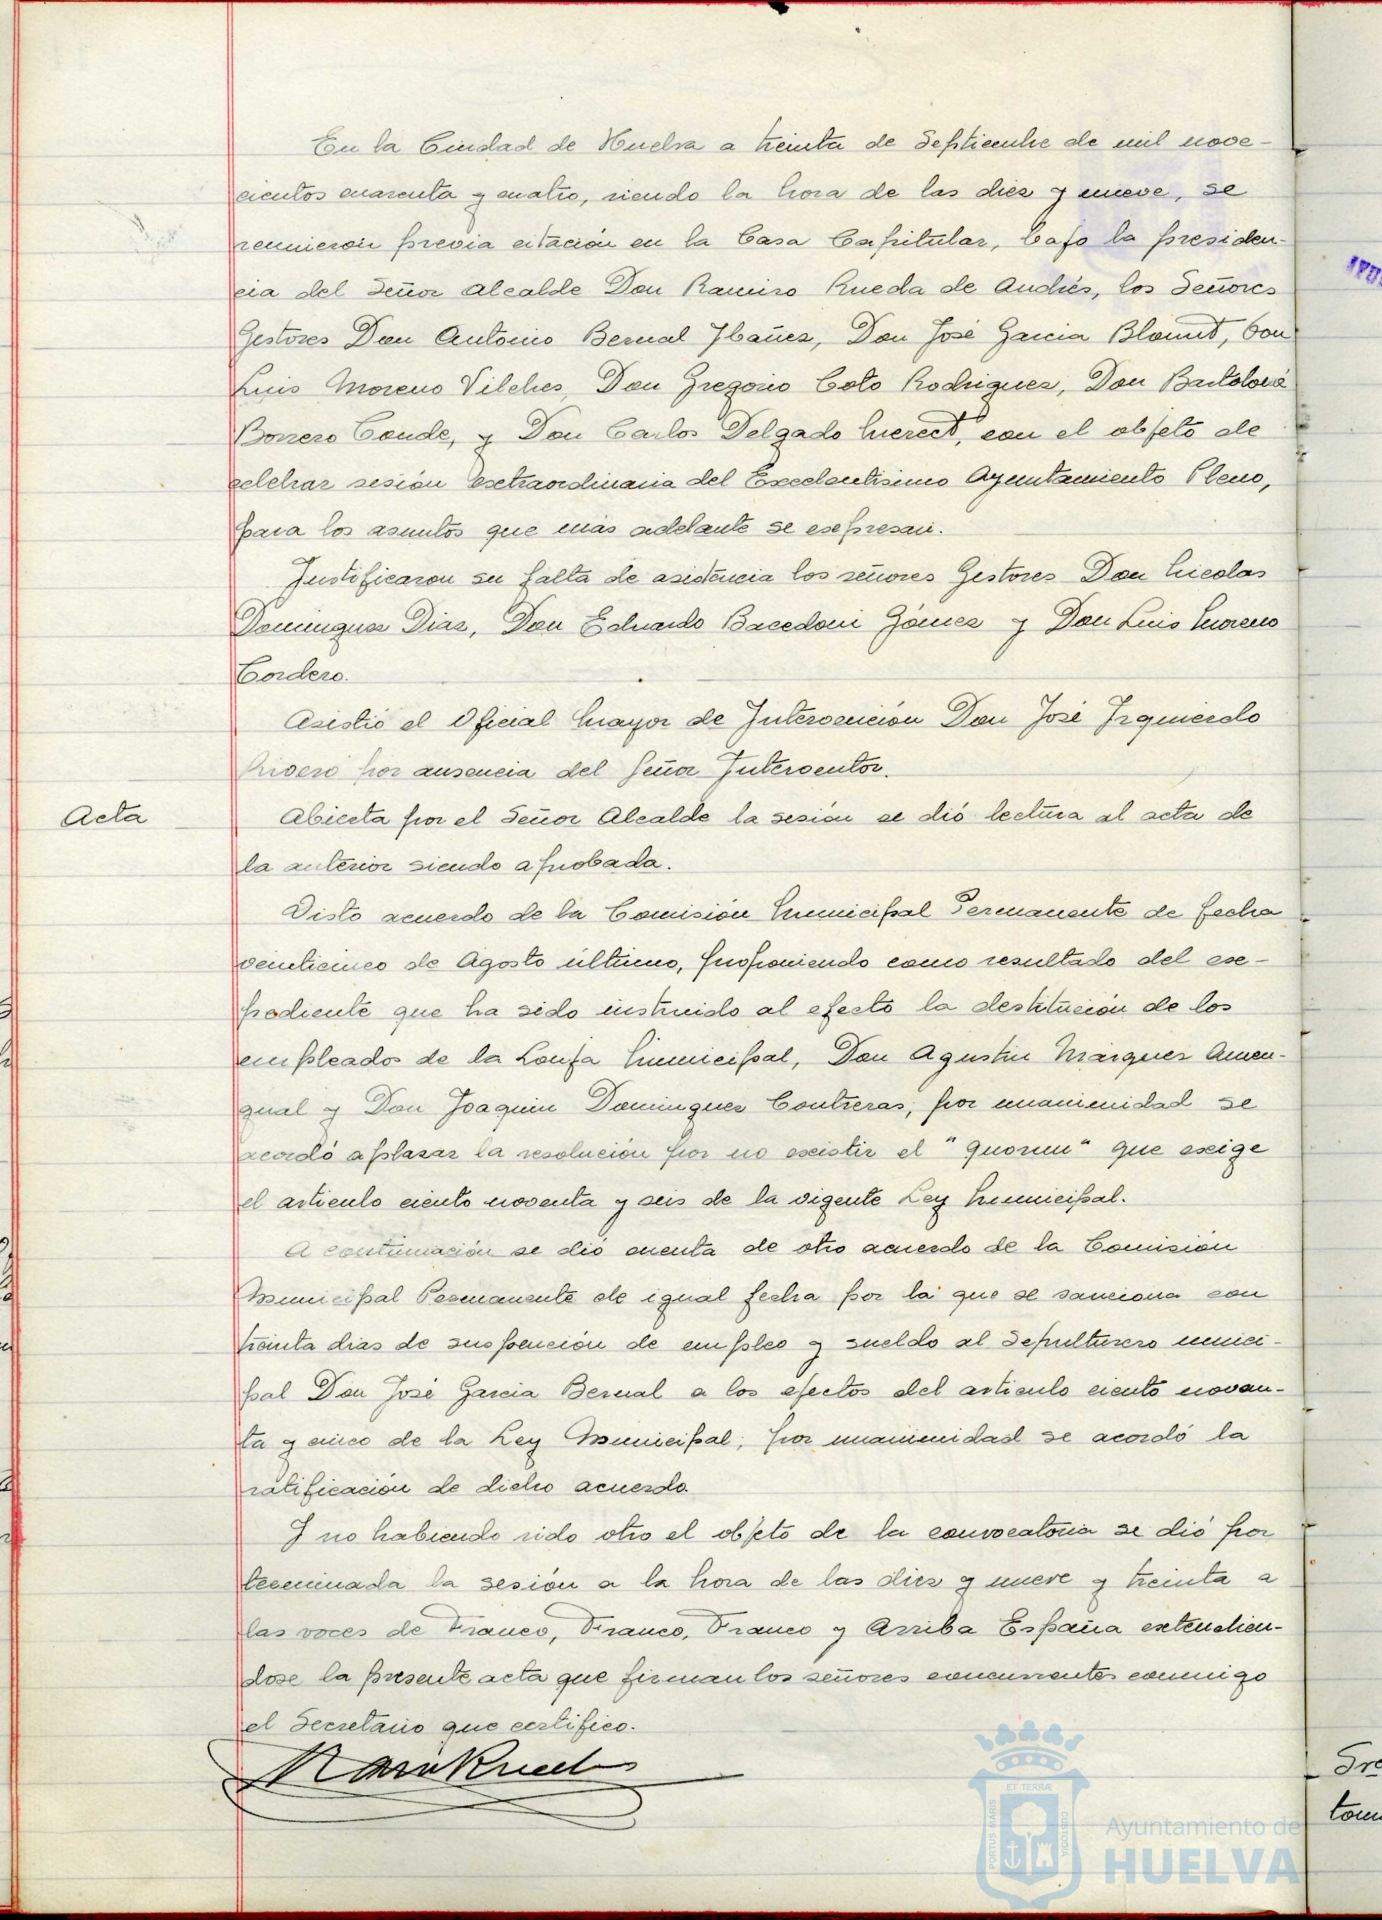 En la Ciudad de Huelva a treinta de Septiembre de mil nove-
cientos cuarenta y cuatro, siendo la hora de las diez y nueve, se
reunieron previa citación en la Casa Capitular, bajo la presiden-
cia del Señor Alcalde Don Ramiro Rueda de Andrés, los Señores
Gestores Don Antonio Bernal Ybañez, Don José Garcia Blount, Don
Luis Moreno Vilches, Don Gregorio Coto Rodriguez, Don Bartolomé
Borrero Conde, y Don Carlos Delgado con el objeto de
celebrar sesión extraordinaria del Excelentisimo Ayuntamiento Pleno,
para los asuntos que más adelante se expresan.
Justificaron su falta de asistencia los señores Gestores Don Nicolas
Dominguez Diaz, Don Eduardo Bacedoni Gómez y Don Luis Moreno
Cordero.
Asistió el Oficial Mayor de Intervención Don José Izquierdo
Rivero por ausencia del Señor Interventor.
Acta
Abierta por el Señor Alcalde la sesión se dió lectura al acta de
la anterior siendo aprobada.
Visto acuerdo de la Comisión Municipal Permanente de fecha
veinticinco de Agosto último, proponiendo como resultado del ex-
pediente que ha sido instruido al efecto la destitución de los
empleados de la Lonja Municipal, Don Agustin Márquez Amen-
gual y Don Joaquin Dominguez Contreras; por unanimidad se
acordó aplazar la resolución por no existir el "quorum" que exige
el articulo ciento noventa y seis de la vigente Ley Municipal.
A continuación se dió cuenta de otro acuerdo de la Comisión
Municipal Permanente de igual fecha por la que se sanciona con
treinta dias de suspención de empleo y sueldo al Sepulturero munici-
pal Don José Garcia Bernal a los efectos del articulo ciento noven-
ta y cinco de la Ley Municipal; por unanimidad se acordó la
ratificación de dicho acuerdo.
Y no habiendo sido otro el objeto de la convocatoria se dió por
terminada la sesión a la hora de las diez y nueve y treinta a
las voces de Franco, Franco, Franco y Arriba España extendien-
dose la presente acta que firman los señores concurrentes conmigo
el Secretario que certifico.
ET TERRÆ
PORTUS MARIS
CUSTODIA
Ayuntamiento de
HUELVA